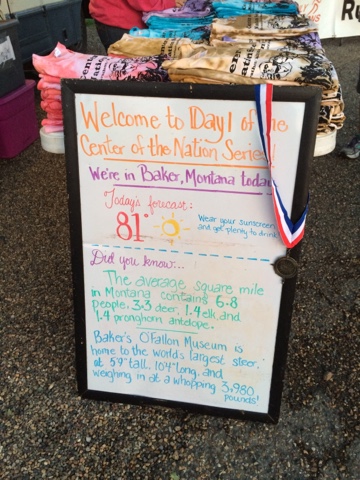 Welcome to Day 1 of the
Center of the Nation Series!
We're in Baker, Montana today
Today's forecast:
81°
Wear your sunscreen
and get plenty to drink!
Did you know...
The average square mile
in Montana contains 6.8
people, 3.3 deer, 1.4 elk and
1.4 pronghorn antelope.
Baker's O'Fallon Museum is
home to the world's largest steer,
at 5'9" tall, 10'4" long, and
weighing in at a whopping 3,980
pounds!
Ru